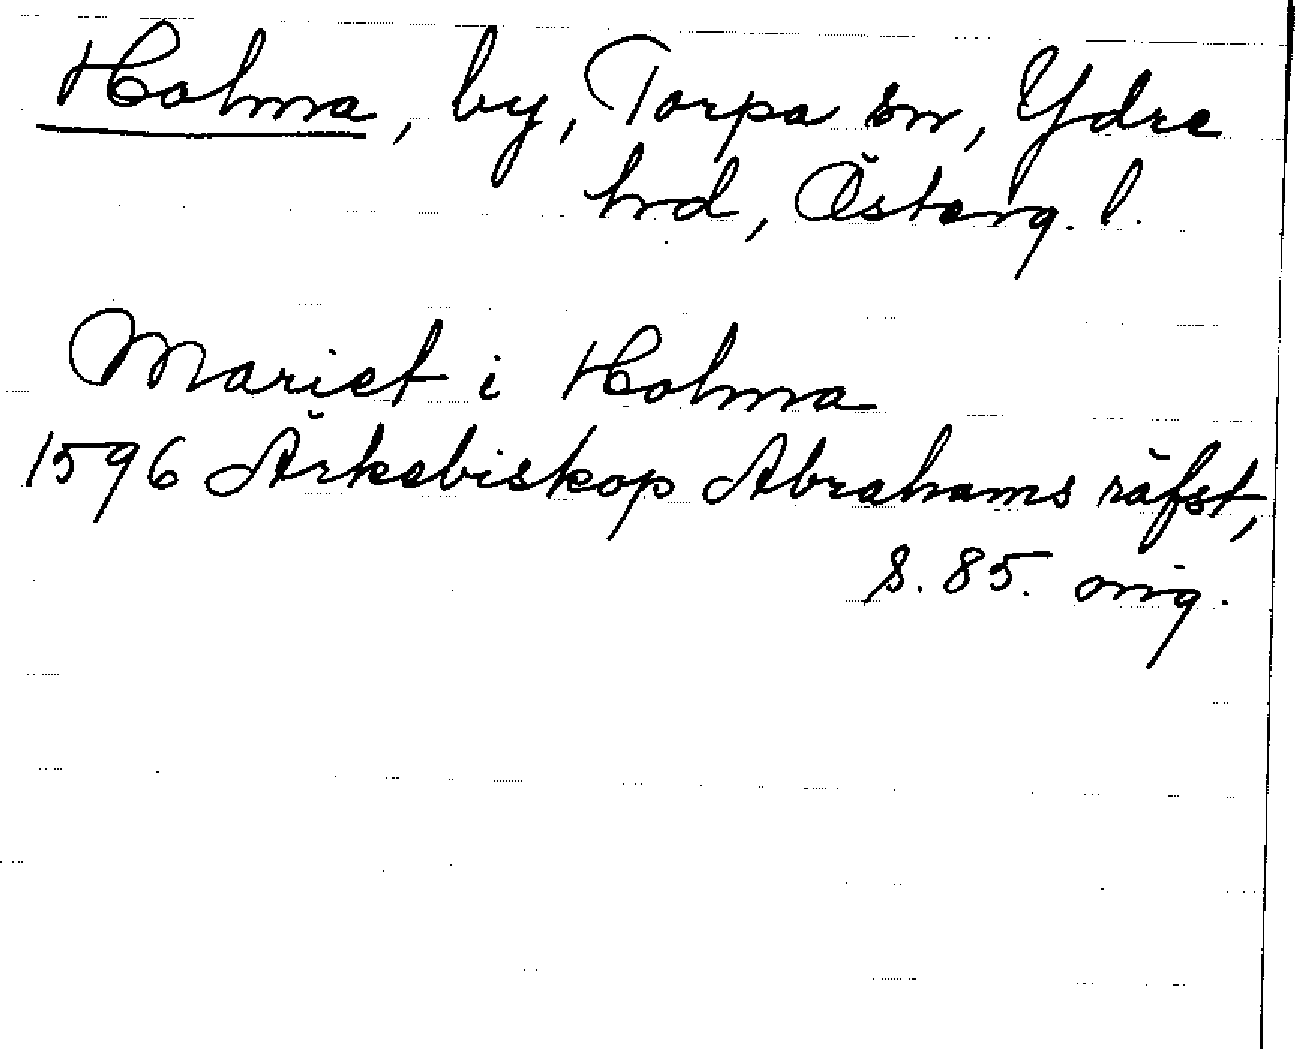 Holma, by, Torpa sn, Ydre
hrd, Österg. l.
Mariet i Holma
1596 Ärkebiskop Abrahams räfst,
s. 85. orig.